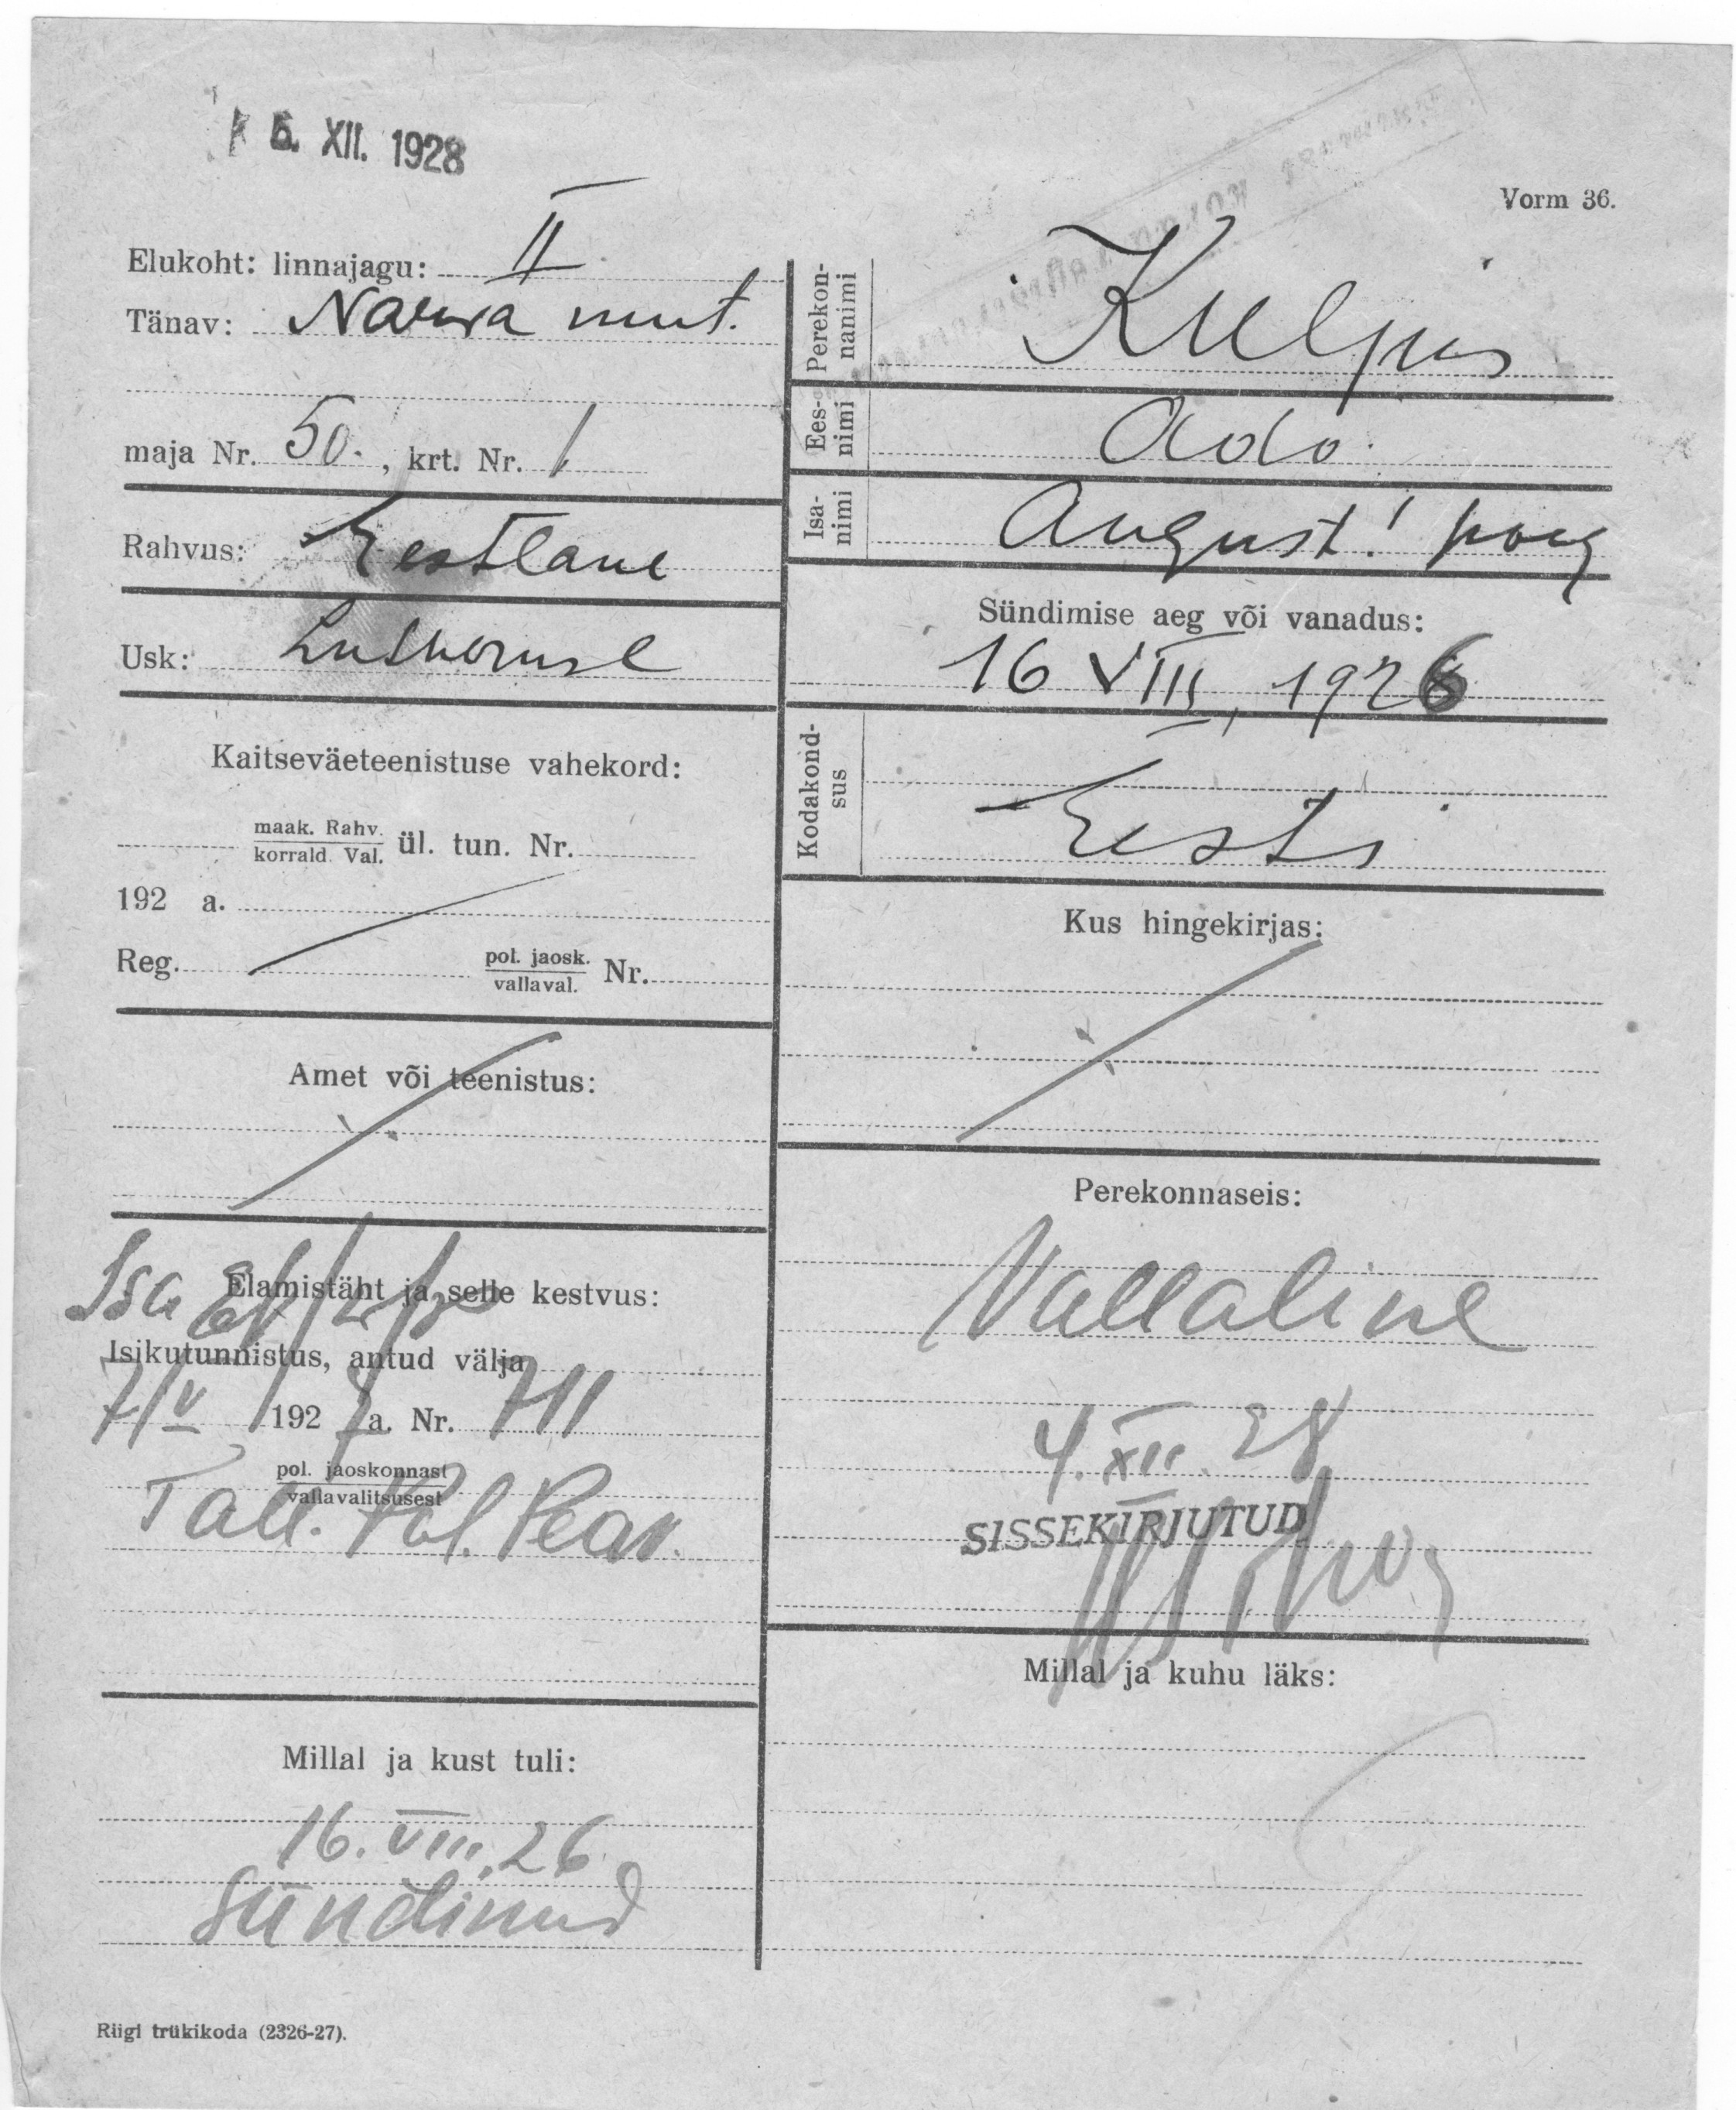 5. XII. 1928
Vorm 36.
Elukoht: linnajagu: II
Tänav: Narva mnt.
maja Nr. 50., krt. Nr. 1
Rahvus: Eestlane
Usk: Lutheruse
Kaitseväeteenistuse vahekord:
maak. Rahv.
korrald. Val. ül. tun. Nr.
192 a.
Reg. pol. jaosk.
vallaval. Nr.
Amet või teenistus:
Isa
Elamistäht ja selle kestvus:
Isikutunnistus, antud välja
7/V 192 a. Nr. 711
pol. jaoskonnast
vallavalitsusest
Tall. Pol.
Millal ja kust tuli:
16. VIII. 26
Sündinud
Perekonnanimi Kulpus
Eesnimi Ado
Isanimi August! poeg
Sündimise aeg või vanadus:
16 VIII, 1926
Kodakondsus
Eesti
Kus hingekirjas:
Perekonnaseis:
Vallaline
4. XII. 28
SISSEKIRJUTUD
Millal ja kuhu läks:
Riigi trükikoda (2326-27).